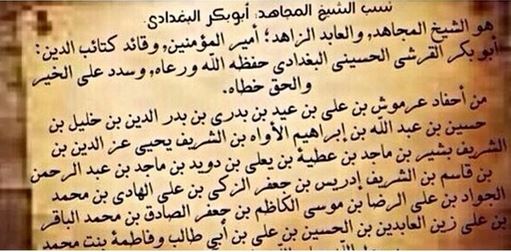 نسب الشيخ المجاهد: أبوبكر البغدادي.
هو الشيخ المجاهد, والعابد الزاهد؛ أمير المؤمنين, وقائد كتائب الدين:
أبو بكر القرشي الحسيني البغدادي حفظه الله ورعاه, وسدد على الخير
والحق خطاه.
من أحفاد عرموش بن علي بن عيد بن بدري بن بدر الدين بن خليل بن
حسين بن عبد الله بن إبراهيم الأواه بن الشريف يحيى عز الدين بن
الشريف بشير بن ماجد بن عطية بن يعلى بن دويد بن ماجد بن عبد الرحمن
بن قاسم بن الشريف إدريس بن جعفر الزكي بن علي الهادي بن محمد
الجواد بن علي الرضا بن موسى الكاظم بن جعفر الصادق بن محمد الباقر
بن علي زين العابدين بن الحسين بن علي بن أبي طالب وفاطمة بنت محمد